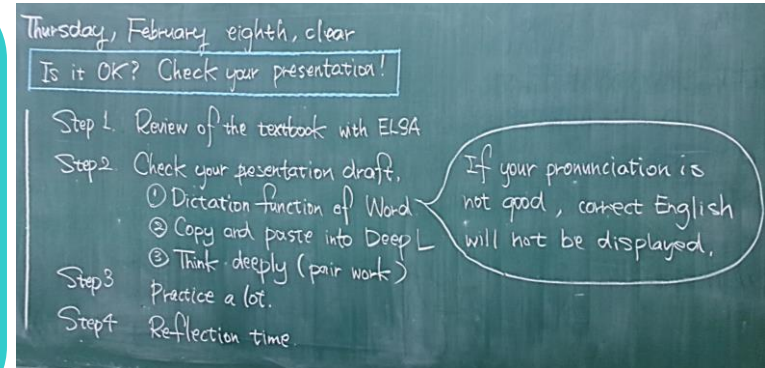 Thursday, February eighth, clear
Is it OK? Check your presentation!
Step 1. Review of the textbook with ELSA
Step2 Check your pesentation draft.
① Dictation function of Word
② Copy and paste into DeepL
③ Think deeply (pair work)
Step3 Practice a lot.
Step4 Reflection time.
If your pronunciation is
not good, correct English
will not be displayed.